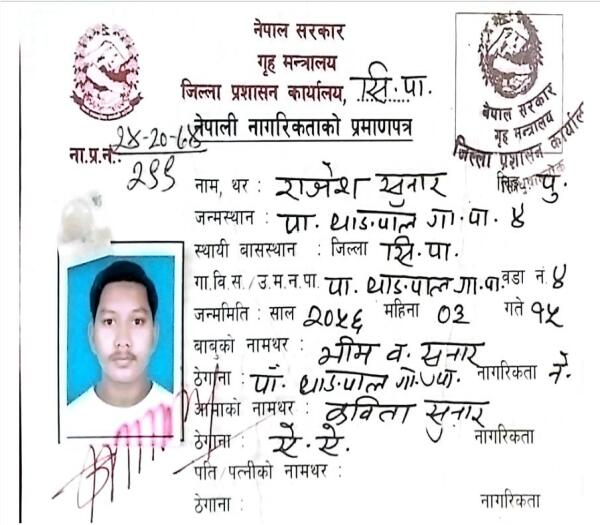 नेपाल सरकार
गृह मन्त्रालय
जिल्ला प्रशासन कार्यालय, सि.पा.
नेपाली नागरिकताको प्रमाणपत्र
नेपाल सरकार
गृह मन्त्रालय
जिल्ला प्रशासन कार्यालय
ना.प्र.नं.: २४-२०-७४
२९९
नाम, थर : राजेश सुनार
जन्मस्थान : पा. थाङपाल गा.पा. ४
स्थायी वासस्थान : जिल्ला सि.पा.
गा.वि.स./उ.म.न.पा. पा. थाङपाल गा.पा. वडा नं ४
जन्ममिति : साल २०५६ महिना ०३ गते १५
बाबुको नामथर : भीम व. सुनार
ठेगाना : पाँ. थाङपाल गा.पा. नागरिकता ने.
आमाको नामथर : कविता सुनार
ठेगाना : ऐ. ऐ. नागरिकता
पति/पत्नीको नामथर :
ठेगाना : नागरिकता